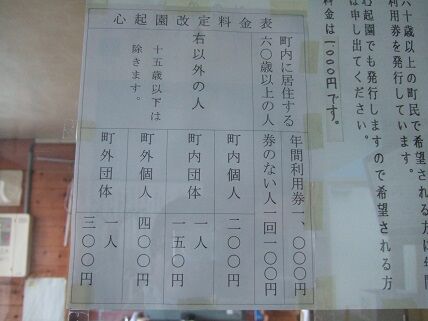 心起園改定料金表
町内に居住する
六〇歳以上の人
年間利用券一、〇〇〇円
券のない人一回一〇〇円
右以外の人
十五歳以下は
除きます。
町内個人
二〇〇円
町内団体
一人
一五〇円
町外個人
四〇〇円
町外団体
一人
三〇〇円
六十歳以上の町民で希望される方は年間
利用券を発行しています。
心起園でも発行しますので希望される方
は申し出てください。
料金は1000円です。